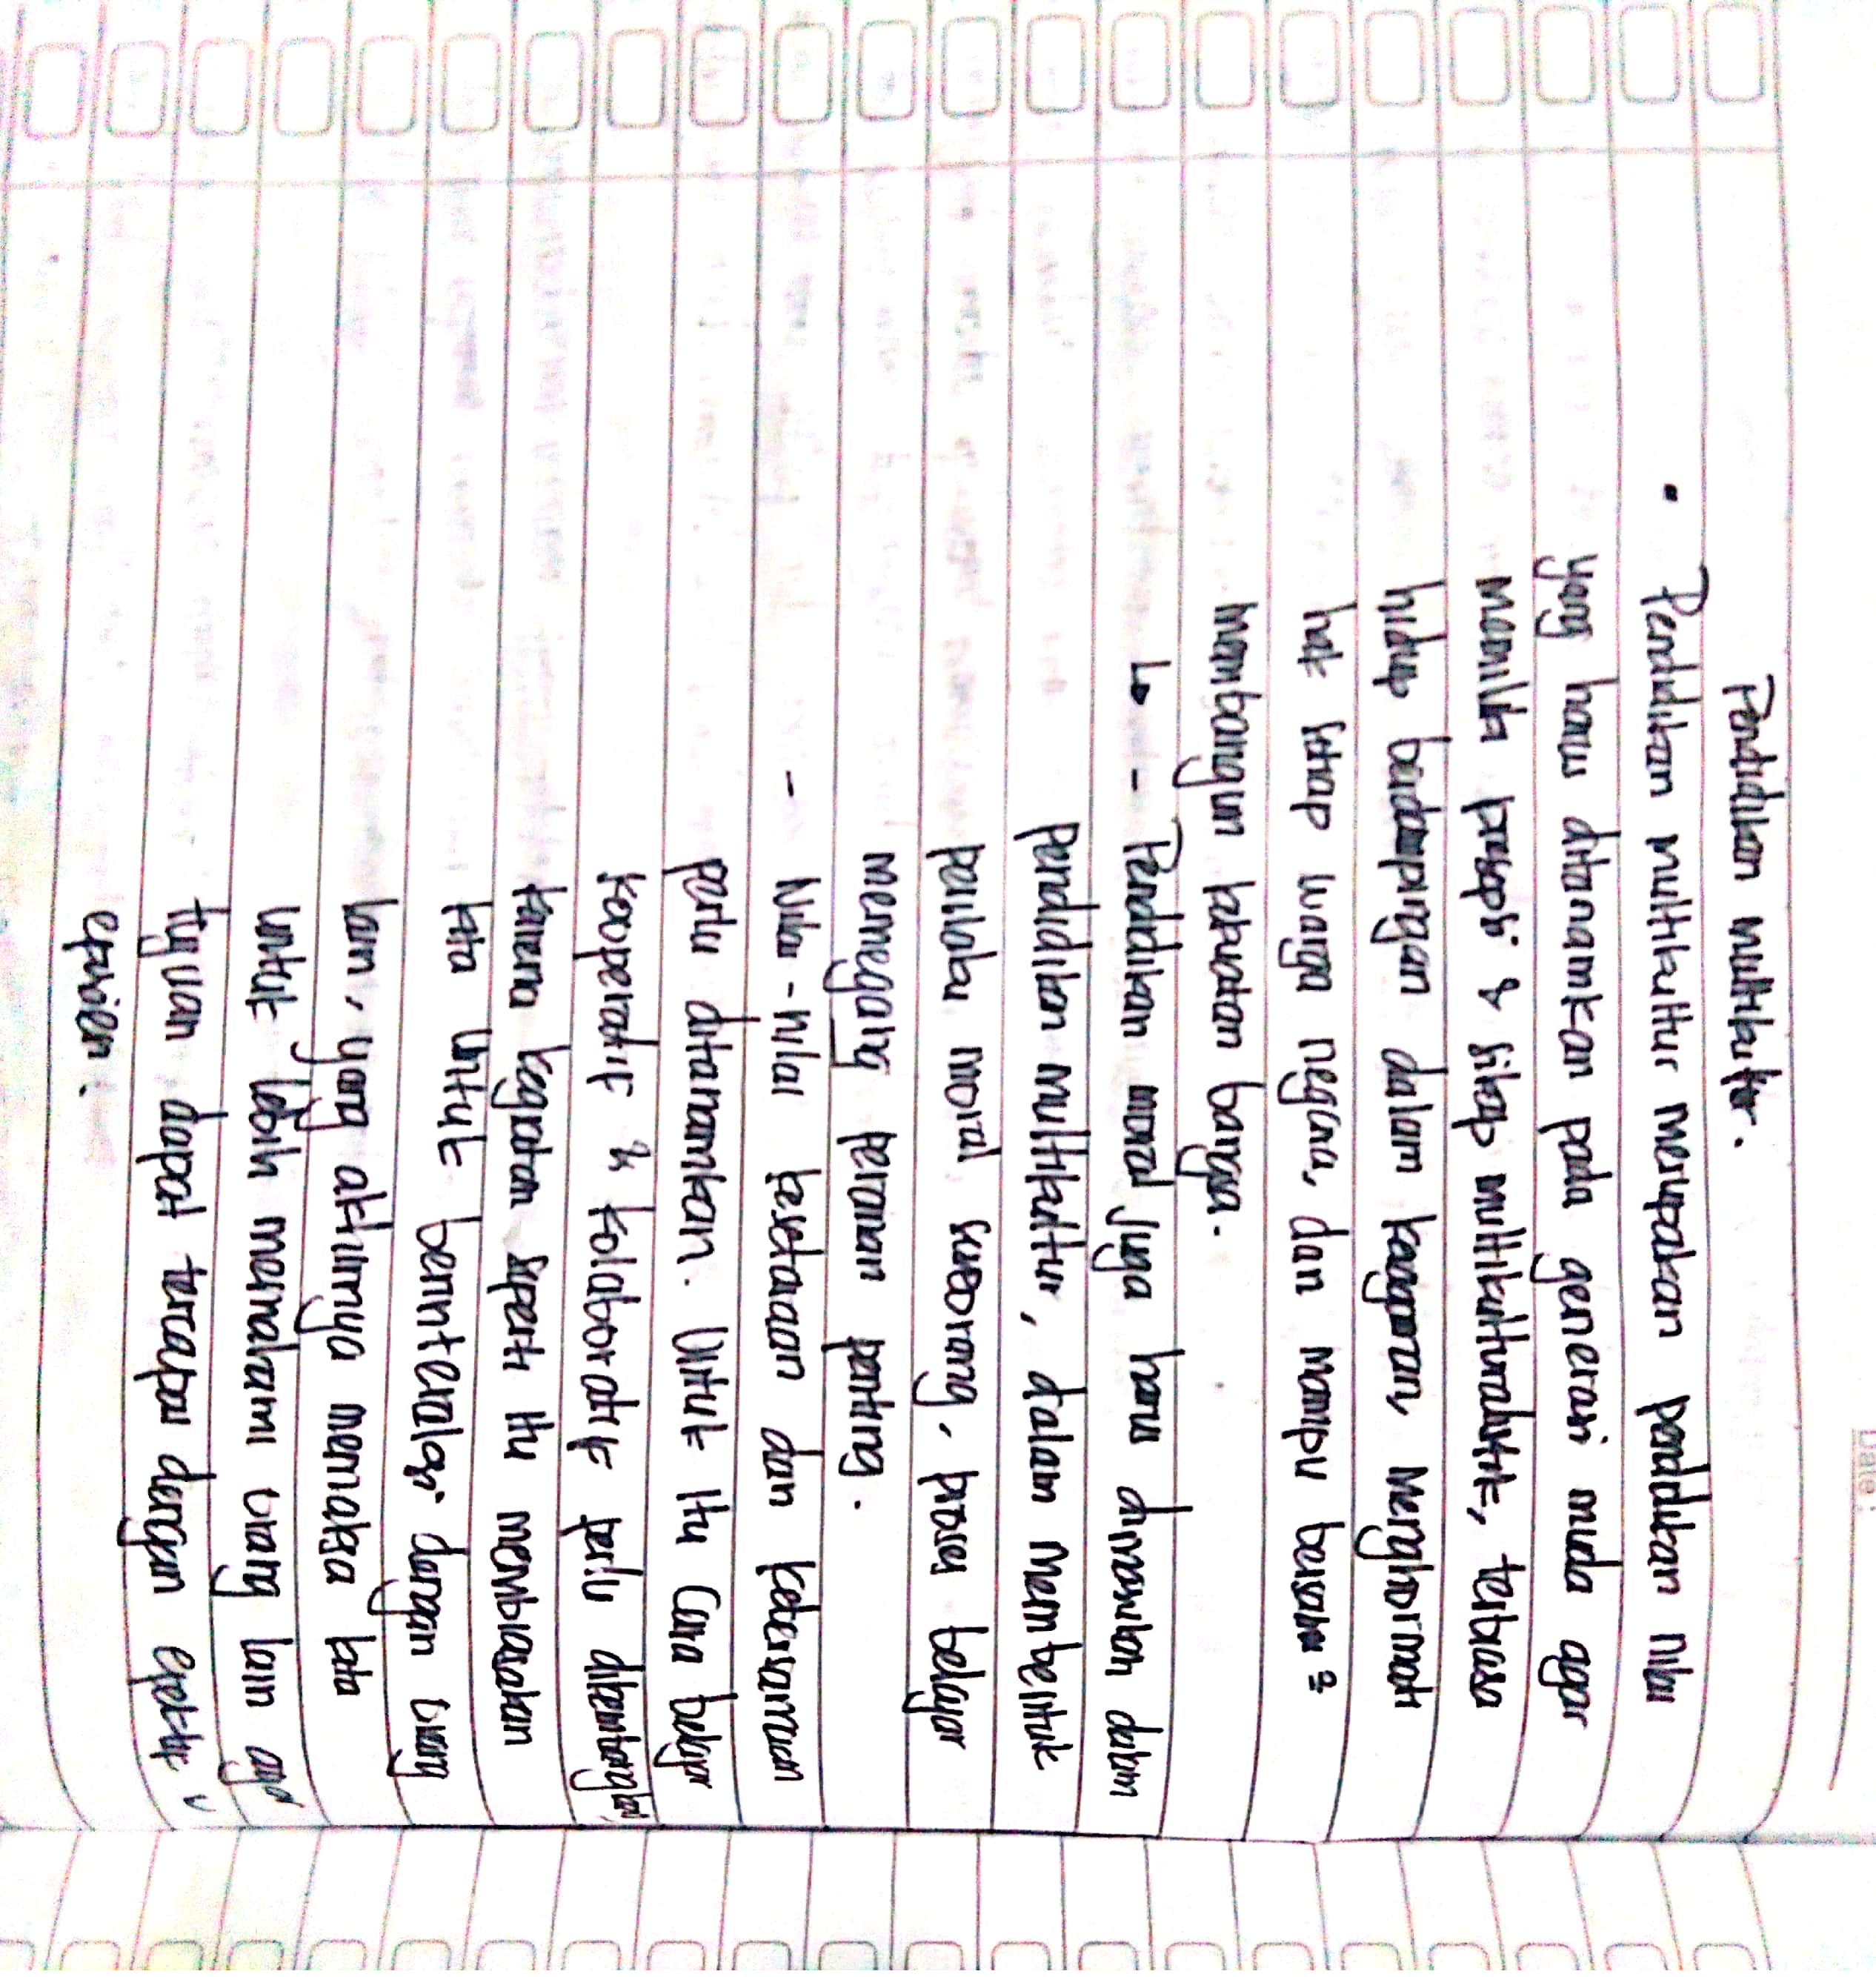 Date:
Pendidikan multikultur.
• Pendidikan multikultur merupakan pendidikan nilai
yang harus ditanamkan pada generasi muda agar
memiliki prespsi & sikap multikulturalistik, terbiasa
hidup berdampingan dalam keragaman, menghormati
hak setiap warga negara, dan mampu bersama²
membangun kekuatan bangsa.
↳ - Pendidikan moral juga harus dimasukan dalam
pendidikan multikultur, dalam membentuk
perilaku moral seseorang, proses belajar
memegang peranan penting.
- Nilai-nilai kesetaraan dan kebersamaan
perlu ditanamkan. Untuk itu cara belajar
kooperatif & kolaboratif perlu dikembangkan,
karena kegiatan seperti itu membiasakan
kita untuk berinteraksi dengan orang
lain, yang akhirnya memaksa kita
untuk lebih memahami orang lain agar
tujuan dapat tercapai dengan efektif &
efisien.